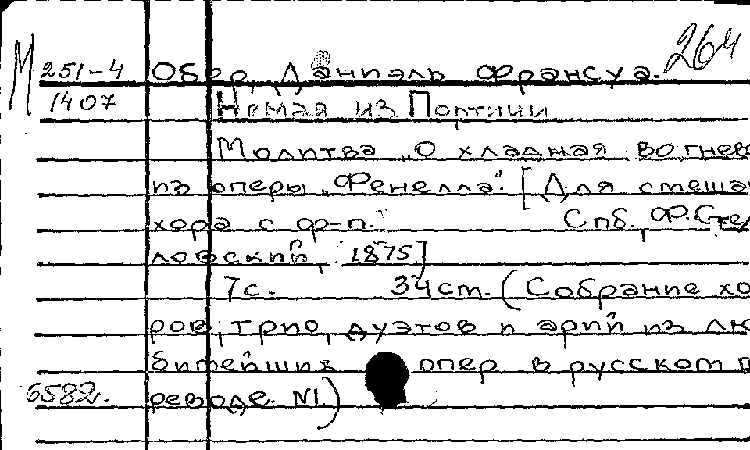 264
М 251-4 Обер, Даниэль Франсуа.
1407 Немая из Портичи
Молитва „О хладная во гневе
из оперы „Фенелла". [Для смеша
хора с ф-п. Спб., Ф. Стел
ловский, 1875]
7с. 34 см. (Собрание хо
ров, трио, дуэтов и арий из лю
битейших опер в русском п
6582. реводе. N1.)